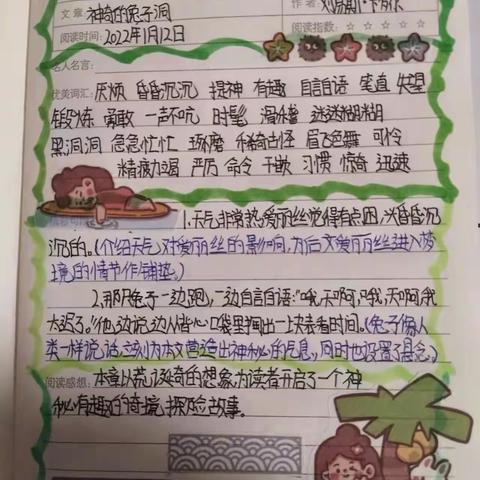 文章 神奇的兔子洞
作者 刘易斯·卡罗尔
阅读时间:2022年1月12日
阅读指数:☆☆☆☆☆
名人名言:
优美词汇:厌烦 昏昏沉沉 提神 有趣 自言自语 笔直 失望
锻炼 勇敢 一声不吭 时髦 滑溜 迷迷糊糊
黑洞洞 急急忙忙 琢磨 稀奇古怪 眉飞色舞 可怜
精疲力竭 严厉 命令 干嘛 习惯 惊奇 迅速
1.天气非常热,爱丽丝觉得有点困,头昏昏沉
沉的。(介绍天气对爱丽丝的影响,为后文爱丽丝进入梦
境的情节作铺垫。)
2.那只兔子一边跑,一边自言自语:"哦,天啊,哦,天啊,我
太迟了。"他边说边从背心口袋里掏出一块表看时间。(兔子像人
类一样说话,立刻为本文营造出神秘的气息,同时也设置了悬念。)
阅读感想:本章以荒诞奇的想象为读者开启了一个神
秘有趣的奇境探险故事。